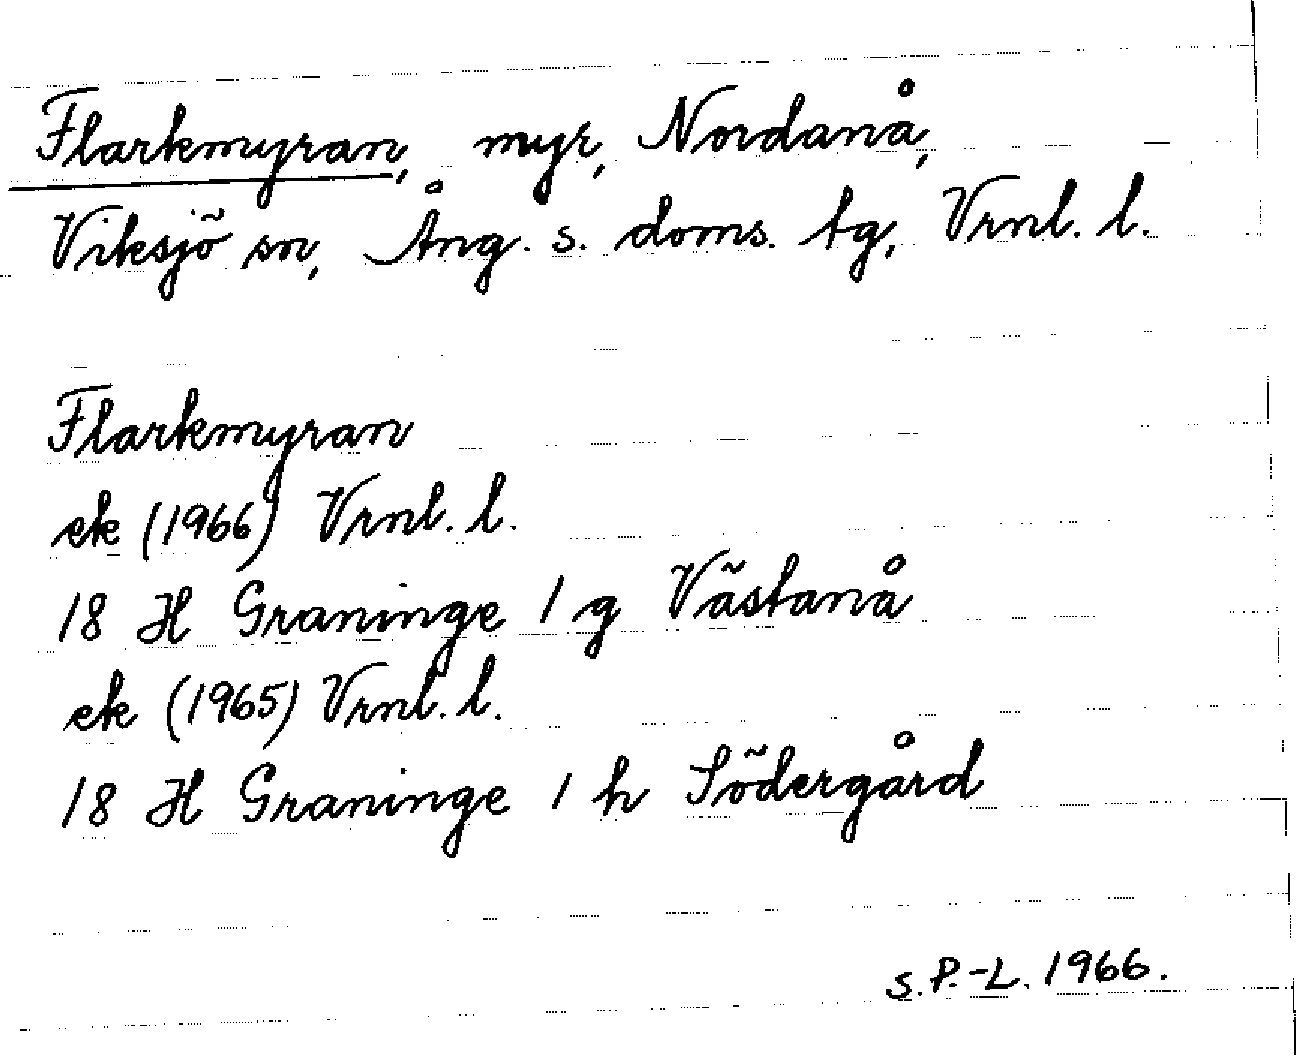 Flarkmyran, myr, Nordanå,
Viksjö sn, Ång. s. doms. tg, Vrnl. l.
Flarkmyran
ek (1966) Vrnl. l.
18 H Graninge 1 g Västanå
ek (1965) Vrnl. l.
18 H Graninge 1 h Södergård
S. P.-L. 1966.